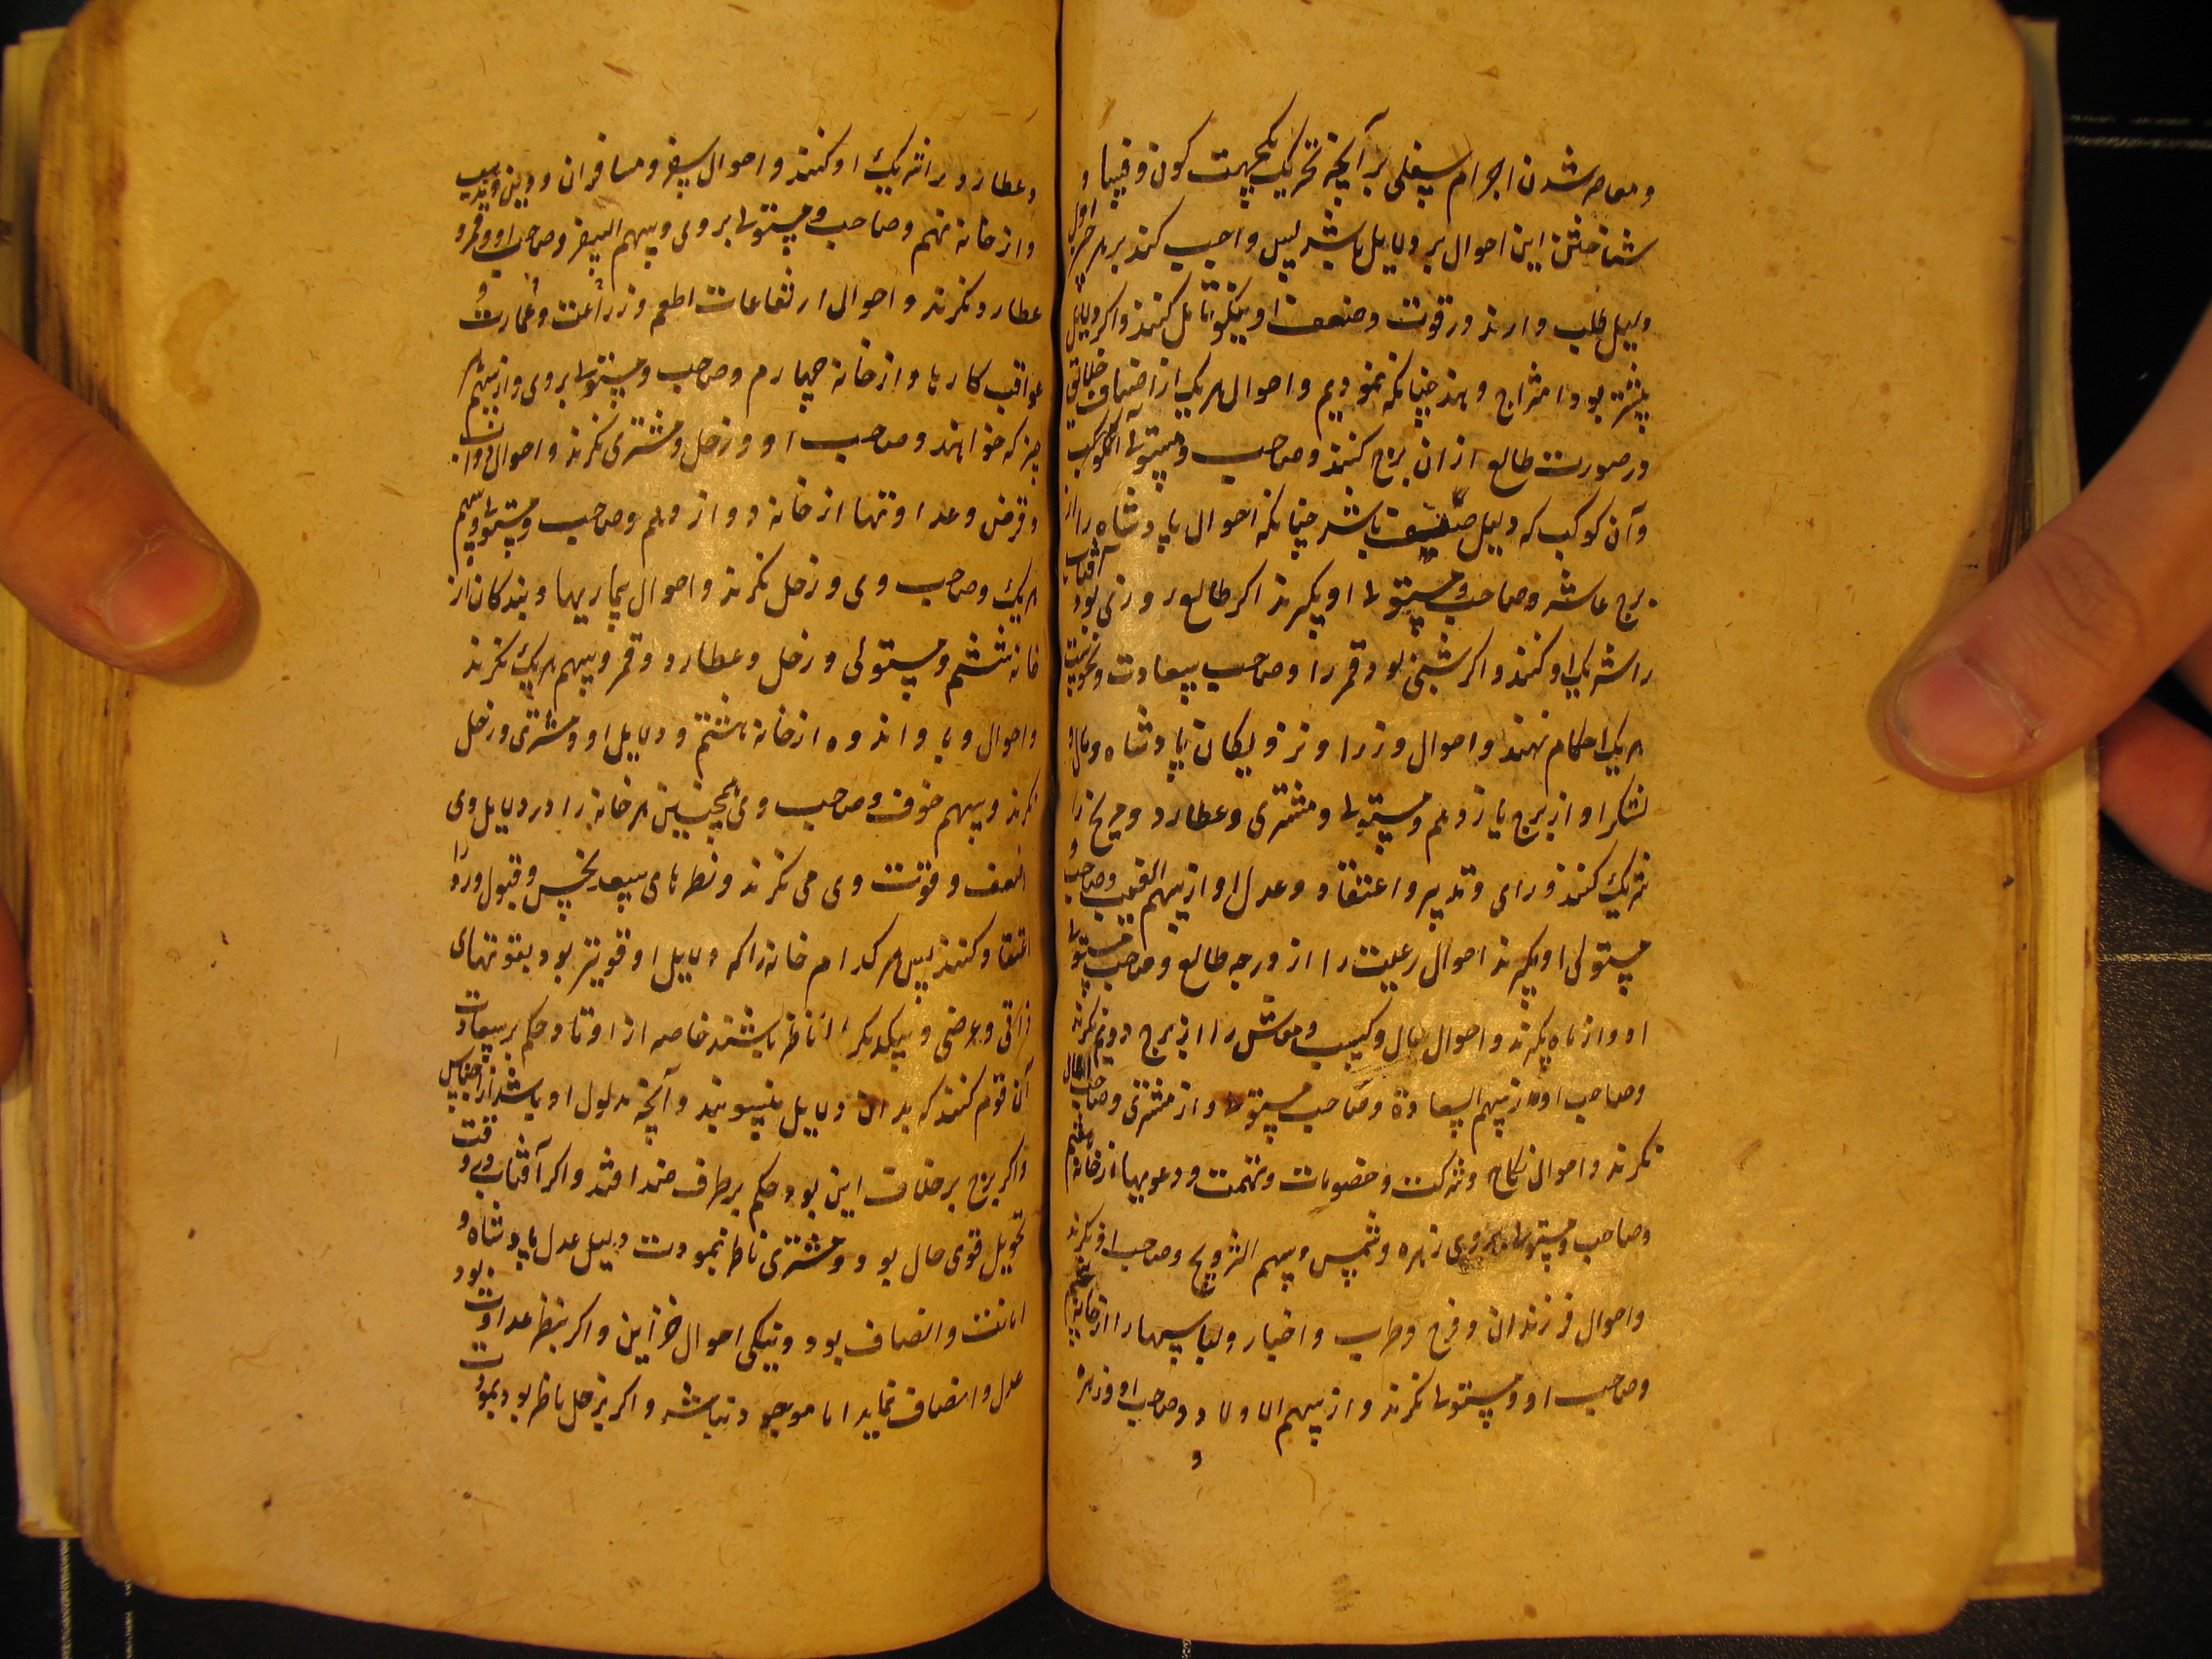 و معاصر شدن اجرام سفلی بر آنچه تحریک بجهت کون و فساد و
شناختن این احوال بر دلایل باشد پس واجب کند بر هر خبر اول
دلیل طلب دارند و در قوت و ضعف او نیکو تامل کنند و اگر دلایل
بیشتر بود امتزاج دهند چنانکه نمودیم و احوال هر یک از اصناف خلایق
در صورت طالع از ان برج کنند و صاحب و مستولی آنکوکب
و آن کوکب که دلیل صنف باشد چنانکه احوال پادشاه را از
برج عاشر و صاحب و مستولی او نگرند اگر طالع روزی بود آفتاب
را شریک او کنند و اگر شبی بود قمر را و صاحب سعادت و نحوست
هر یک احکام نهند و احوال وزرا و نزدیکان پادشاه و مال و
لشکر او از برج یازدهم و مستولی و مشتری و عطارد و مریخ را
شریک کنند و رای و تدبیر و اعتقاد و عدل او از سهم الغیب و صاحب و
مستولی او نگرند احوال رعیت را از درجه طالع و صاحب و مستولی
او و از ماه نگرند و احوال مال و کسب و معاش را از برج دویم نگرند
و صاحب او و از سهم السعادة و صاحب مستولی و از مشتری و صاحب المال
نگرند و احوال نکاح و شرکت و خصومات و تهمت و دعویها از خانه هفتم
و صاحب و مستولی بروی زهره و شمس و سهم التزویج و صاحب او نگرند
و احوال فرزندان و فرح و طرب و اخبار و لباسها را از خانه پنجم
و صاحب او و مستولی نگرند و از سهم الاولاد و صاحب او و زهره
و
و عطارد را شریک او کنند و احوال سفر و مسافران و دین
و از خانه نهم و صاحب و مستولی بروی و سهم السفر و صاحب او و قمر و
عطارد نگرند و احوال ارتفاعات اطعم و زراعت و عمارت و
عواقب کارها و از خانه چهارم و صاحب و مستولی بروی و از سهم هر
چیز که خواهند و صاحب او و زحل و مشتری نگرند و احوال دواب
و قرض و عداوتها از خانه دوازدهم و صاحب و مستولی و سهم
هر یک و صاحب وی و زحل نگرند و احوال بیماریها و بندکان از
خانه ششم و مستولی و زحل و عطارد و قمر و سهم هر یک نگرند
و احوال وبا و اندوه از خانه هشتم و دلایل او و مشتری و زحل
نگرند و سهم خوف و صاحب وی همچنین هر خانه را در دلایل وی
ضعف و قوت وی می نگرند و نظرهای سعد و نحس و قبول و رد را
اعتقاد کنند پس هر کدام خانه را که دلایل او قویتر بود بقوتهای
ذاتی و عرضی و بیکدیگر ناظر باشند خاصه از اوتاد حکم بر سعادت
آن قوم کنند که بدان دلایل منسوبند و آنچه مدلول او باشد از اجناس
و اگر برج بر خلاف این بود حکم بر طرف ضد افتد و اگر آفتاب در وقت
تحویل قوی حال بود و مشتری ناظر بمودت دلیل عدل پادشاه و
امانت و انصاف بود و نیکی احوال خزاین و اگر بنظر عداوت بود
عدل و انصاف نماید اما موجود نباشد و اگر زحل ناظر بود بمودت